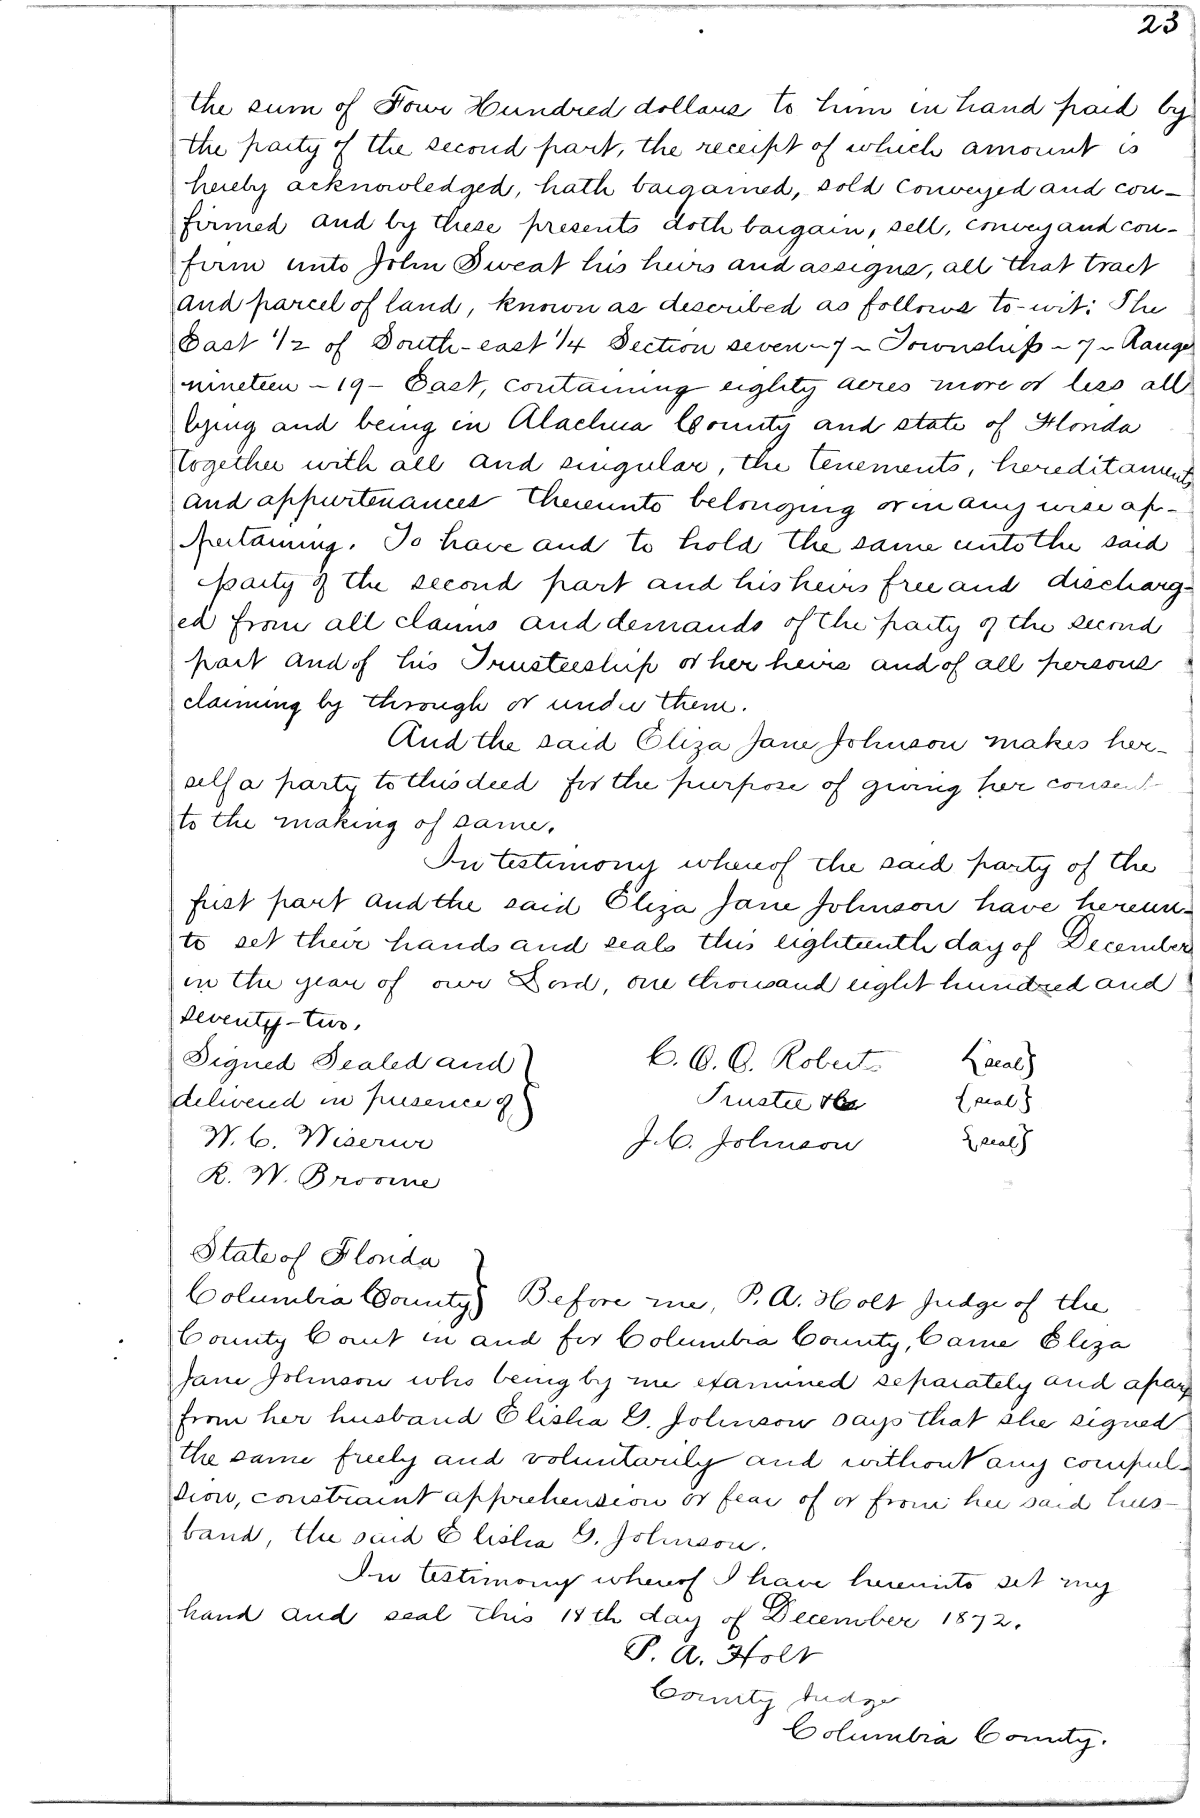 23
the sum of Four Hundred dollars to him in hand paid by
the party of the second part, the receipt of which amount is
hereby acknowledged, hath bargained, sold conveyed and con-
firmed and by these presents doth bargain, sell, convey and con-
firm unto John Sweat his heirs and assigns, all that tract
and parcel of land, known as described as follows to-wit: The
East 1/2 of South-east 1/4 Section seven-7- Township-7- Range
nineteen -19- East, containing eighty acres more or less all
lying and being in Alachua County and state of Florida
together with all and singular, the tenements, hereditaments
and appurtenances thereunto belonging or in any wise ap-
pertaining. To have and to hold the same unto the said
party of the second part and his heirs free and discharg-
ed from all claims and demands of the party of the second
part and of his Trusteeship or her heirs and of all persons
claiming by through or under them.
And the said Eliza Jane Johnson makes her-
self a party to this deed for the purpose of giving her consent
to the making of same.
In testimony whereof the said party of the
first part and the said Eliza Jane Johnson have hereun-
to set their hands and seals this eighteenth day of December
in the year of our Lord, one thousand eight hundred and
seventy-two.
Signed Sealed and } C. O. O. Roberts {seal}
delivered in presence of } Trustee {seal}
W. C. J. C. Johnson {seal}
R. W. Broome
State of Florida }
Columbia County } Before me, P. A. Holt Judge of the
County Court in and for Columbia County, Came Eliza
Jane Johnson who being by me examined separately and apart
from her husband Elisha G. Johnson says that she signed
the same freely and voluntarily and without any compul-
sion, constraint apprehension or fear of or from her said hus-
band, the said Elisha G. Johnson.
In testimony whereof I have hereunto set my
hand and seal this 18th day of December 1872.
P. A. Holt
County Judge
Columbia County.